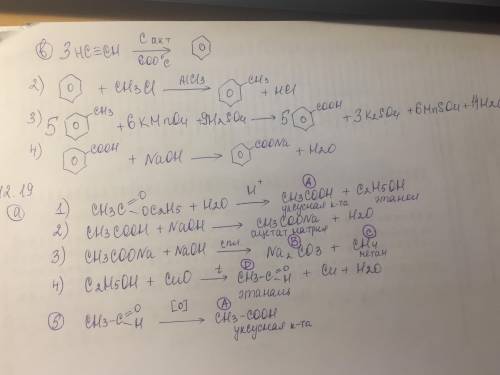 в) 3HC≡CH C акт → 600°C
2) + CH3Cl AlCl3 → CH3 + HCl
3) 5 CH3 + 6KMnO4 + 9H2SO4 → 5 COOH + 3K2SO4 + 6MnSO4 + 14H2O
4) COOH + NaOH → COONa + H2O
12.19
а) 1) CH3C O OC2H5 + H2O H+ → CH3COOH + C2H5OH
A уксусная к-та этанол
2) CH3COOH + NaOH → CH3COONa + H2O
ацетат натрия
3) CH3COONa + NaOH спл. → Na2CO3 + CH4
B C метан
4) C2H5OH + CuO t → CH3-C O H + Cu + H2O
D этаналь
5) CH3-C O H [O] → CH3-COOH
A уксусная к-та